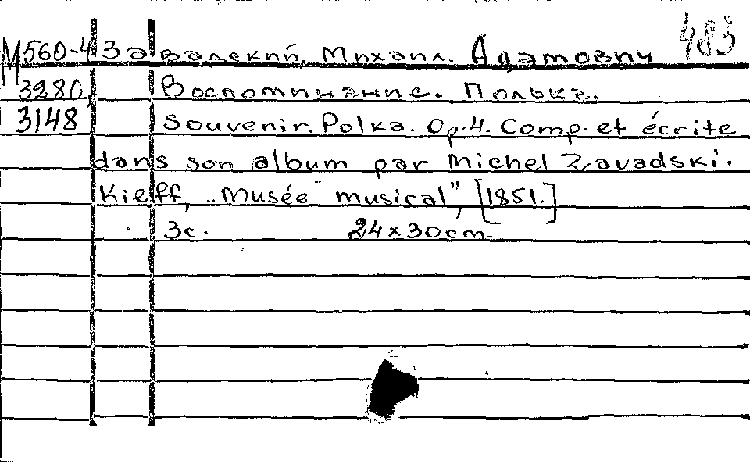 М560-4 Завадский, Михаил Адамович 483
3280 Воспоминание. Полька.
3148 Souvenir. Polka. Op. 4. Comp. et écrite
dans son album par Michel Zavadski.
Kieff, „Musée musical”, [1851.]
3с. 24x30cm.